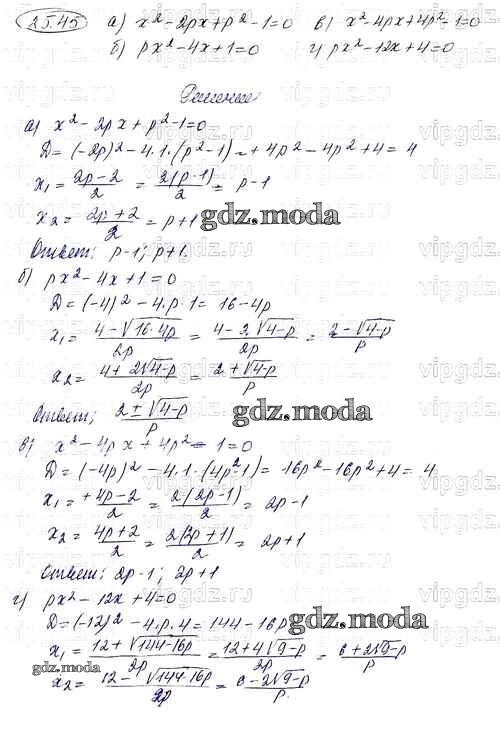 25.45 а) x² - 2px + p² - 1 = 0 в) x² - 4px + 4p² - 1 = 0
б) px² - 4x + 1 = 0 г) px² - 12x + 4 = 0
Решение
а) x² - 2px + p² - 1 = 0
D = (-2p)² - 4·1·(p² - 1) = +4p² - 4p² + 4 = 4
x₁ = (2p - 2)/2 = 2(p - 1)/2 = p - 1
x₂ = (2p + 2)/2 = p + 1
gdz.moda
Ответ: p - 1; p + 1.
б) px² - 4x + 1 = 0
D = (-4)² - 4·p·1 = 16 - 4p
x₁ = (4 - √(16·4p))/2p = (4 - 2√(4-p))/2p = (2 - √(4-p))/p
x₂ = (4 + 2√(4-p))/2p = (2 + √(4-p))/p
Ответ; (2 ± √(4-p))/p
gdz.moda
в) x² - 4px + 4p² - 1 = 0
D = (-4p)² - 4·1·(4p² 1) = 16p² - 16p² + 4 = 4
x₁ = (+4p - 2)/2 = 2(2p - 1)/2 = 2p - 1
x₂ = (4p + 2)/2 = 2(2p + 1)/2 = 2p + 1
Ответ: 2p - 1; 2p + 1
г) px² - 12x + 4 = 0
D = (-12)² - 4·p·4 = 144 - 16p
gdz.moda
x₁ = (12 + √(144-16p))/2p = (12 + 4√(9-p))/2p = (6 + 2√(9-p))/p
x₂ = (12 - √(144-16p))/2p = (6 - 2√(9-p))/p.
gdz.moda